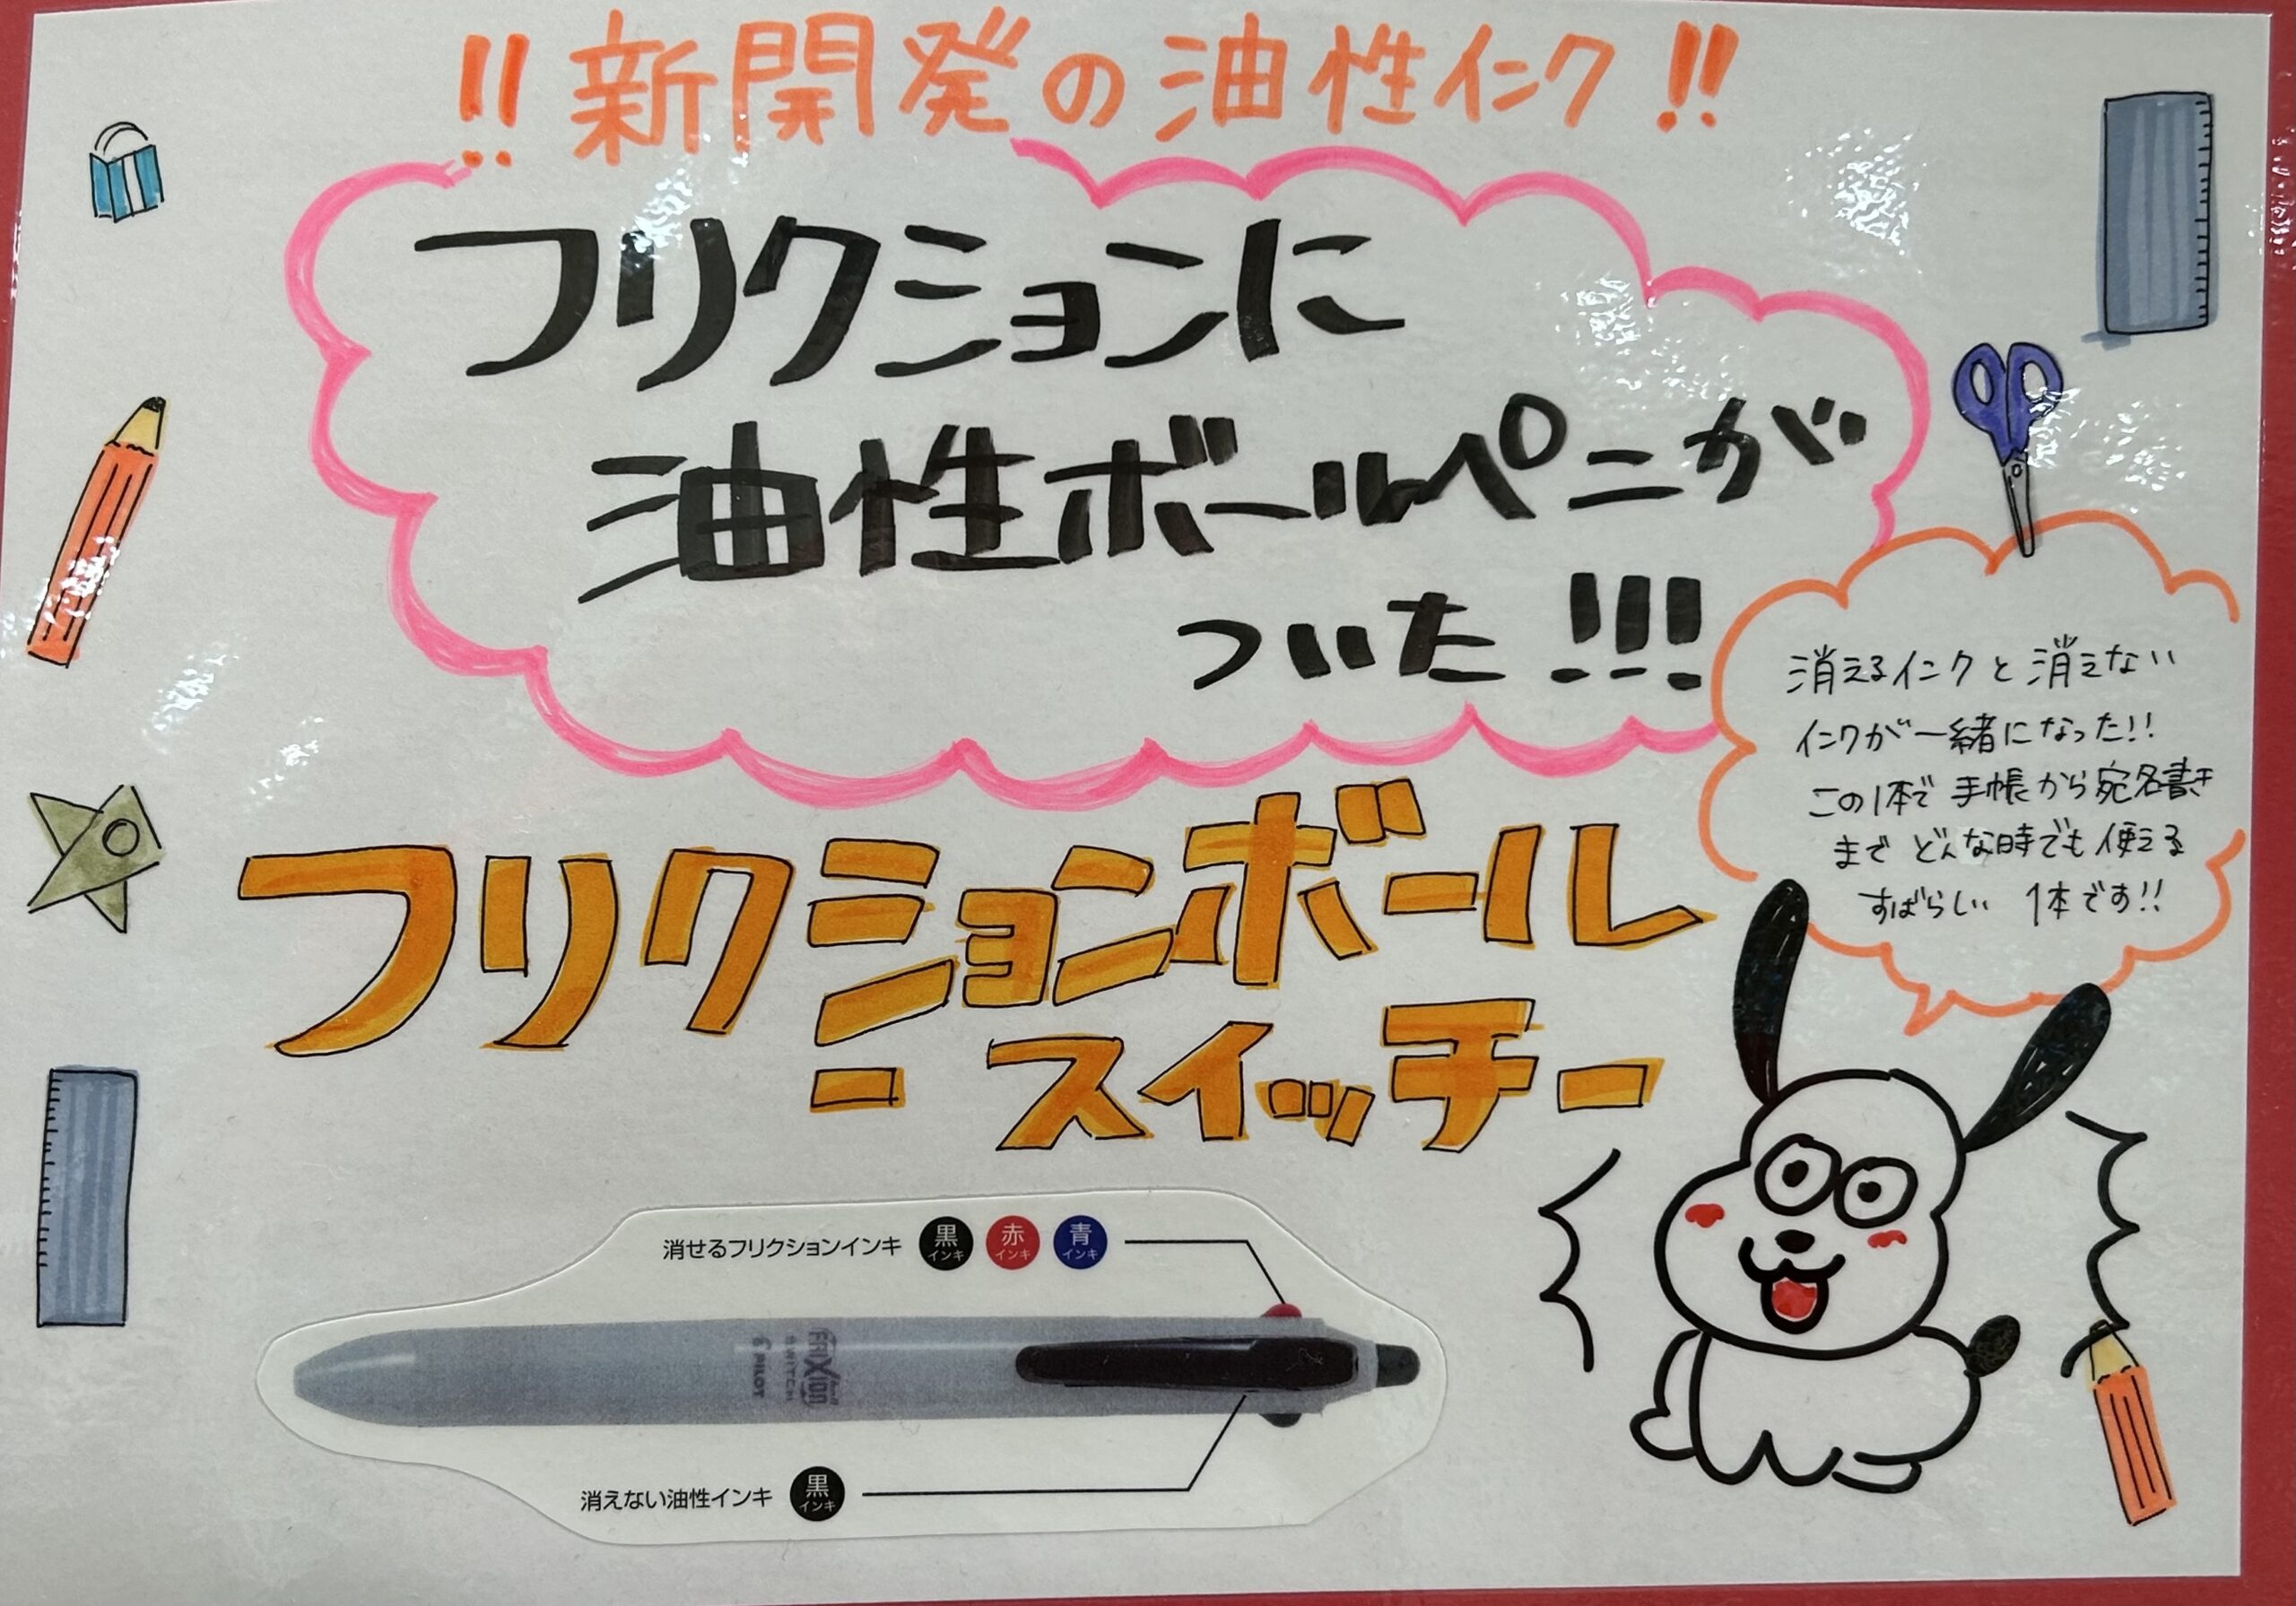 !!新開発の油性インク!!
フリクションに
油性ボールペンが
ついた!!!
消えるインクと消えない
インクが一緒になった!!
この1本で手帳から宛名書き
までどんな時でも使える
すばらしい 1本です!!
フリクションボール
-スイッチ-
消せるフリクションインキ 黒インキ 赤インキ 青インキ
FRIXION Ball
SWITCH
PILOT
消えない油性インキ 黒インキ